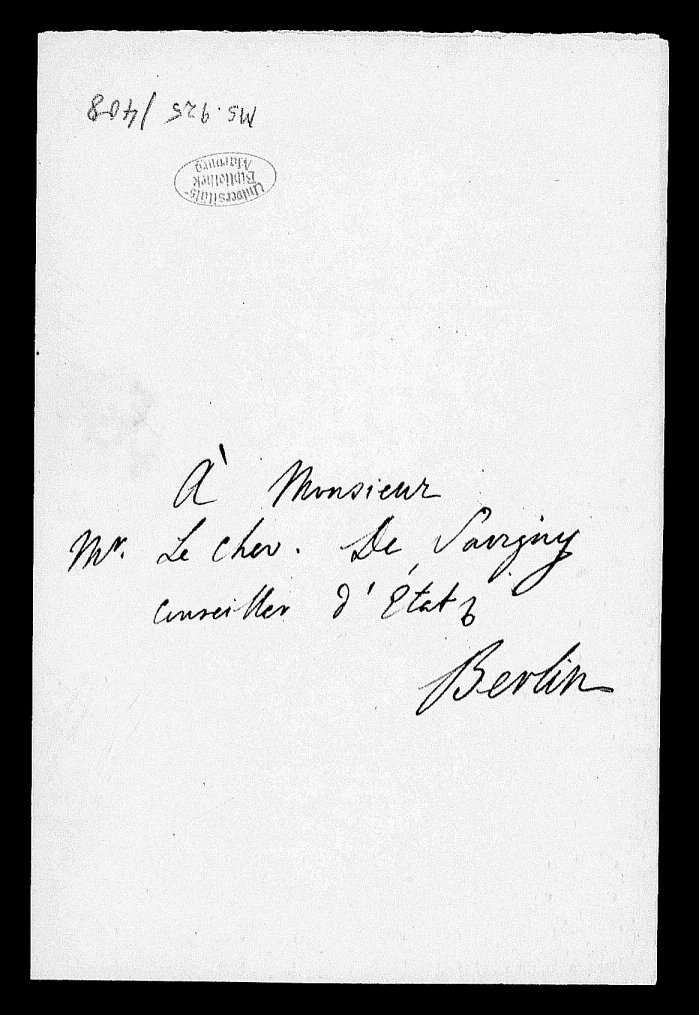 Ms. 925/408
Universitäts-
Bibliothek
Marburg
À Monsieur
Mr. Le Chev. De Savigny
Conseiller d'État
Berlin